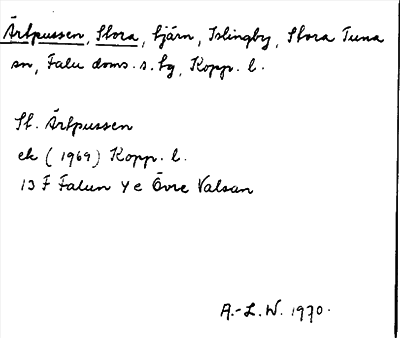 Ärtpussen, Stora, tjärn, Islingby, Stora Tuna
sn, Falu doms. s. tg, Kopp. l.
St. Ärtpussen
ek (1969) Kopp. l.
13 F Falun Y e Övre Valsan
A.-L. W. 1970.